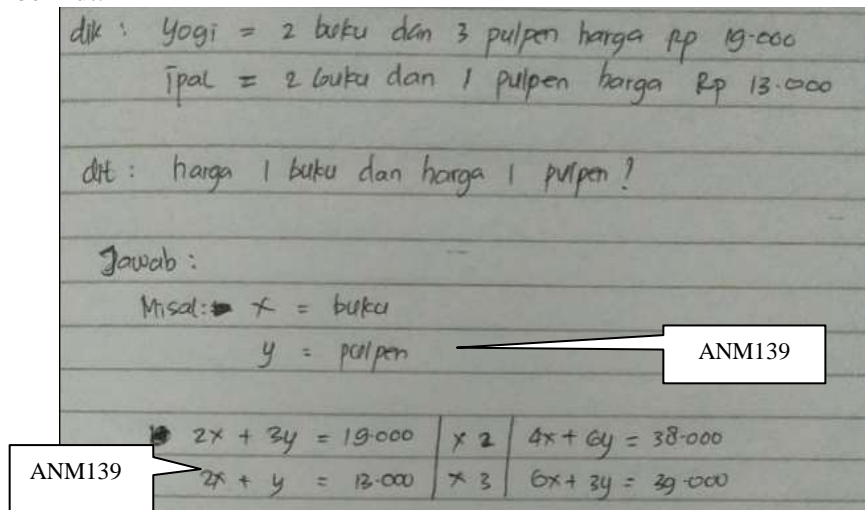 dik : Yogi = 2 buku dan 3 pulpen harga Rp 19.000
ipal = 2 buku dan 1 pulpen harga Rp 13.000
dit : harga 1 buku dan harga 1 pulpen ?
Jawab :
Misal : x = buku
y = pulpen
ANM139
2x + 3y = 19.000 | x 2 | 4x + 6y = 38.000
2x + y = 13.000 | x 3 | 6x + 3y = 39.000
ANM139